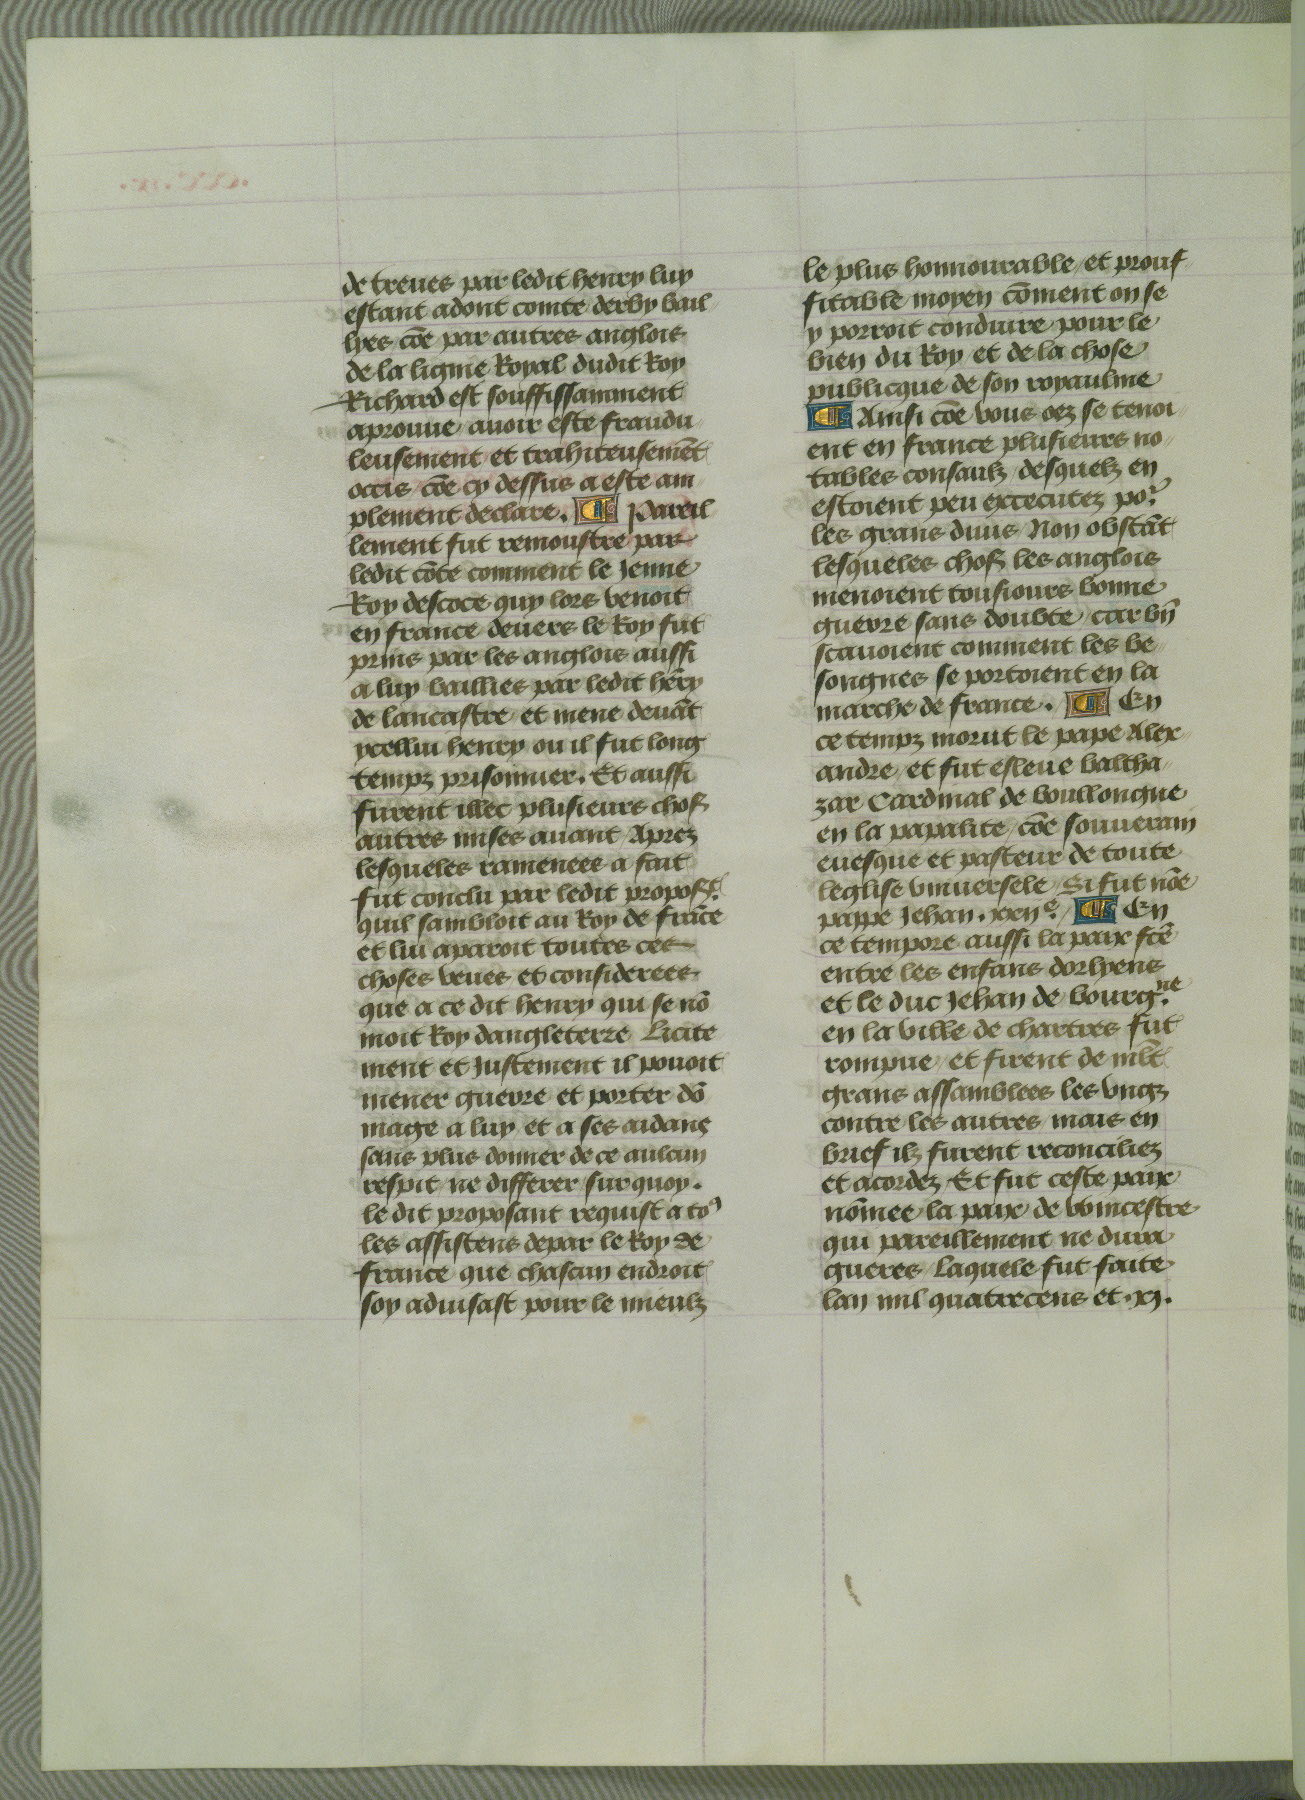 de treues par ledit henry luy
estant adont comte derby bail
lyes cõe par autres anglois
de la ligme Royal dudit Roy
Richard est souffissamment
aprouue auoir este fraudu
leusement et trahiteusemẽt
occis cõe cy dessus a este am
plement declare. ¶ Pareil
lement fut remoustre par
ledit cõte comment le Jenne
Roy descoce quy lors venoit
en france deuers le Roy fut
prins par les anglois aussi
a luy baillies par ledit hẽry
de lancastre et mene deuãt
ycellui henry ou il fut long
tempz prisonnier. Et aussi
furent illec plusieurs choß
autres mises auant Aprez
lesqueles ramenees a fait
fut conclu par ledit propoßt
quil sambloit au Roy de frãce
et lui aparoit toutes ces
choses veues et considerees
que a ce dit henry qui se nõ
moit Roy dangleterre Licite
ment et Justement il pouoit
mener guerre et porter dõ
mage a luy et a ses aidans
sans plus donner de ce aulcun
respit ne differer sur quoy.
le dit proposant requist a toꝰ
les assistens depar le Roy de
france que chascun endroit
soy aduisast pour le mieulz
le plus honnourable et prouf
fitable moyen cõment on se
y porroit conduire pour le
bien du Roy et de la chose
publicque de son royaulme
¶ Ainsi cõe vous oez se tenoi
ent en france plusieurs no
tables consaulz desquelz en
estoient peu executez poʳ
les grans diuis Non obstãt
lesqueles choß les anglois
menoient tousiours bonne
guerre sans doubte car bñ
scauoient comment les be
songnes se portoient en la
marche de france. ¶ En
ce tempz morut le pape Alex
andre et fut esleue baltha
zar Cardinal de boullongne
en la papalite cõe souuerain
euesque et pasteur de toute
leglise vniuersele Si fut nõe
pappe Jehan .xxiiᵉ. ¶ En
ce tempore aussi la paix fcẽ
entre les enfans dorlyens
et le duc Jehan de bourg.ⁿᵉ
en la ville de chartres fut
rompue et firent de mlt̃
grans assamblees les vngz
contre les autres mais en
brief ilz furent reconciliez
et acordez Et fut ceste paix
nõmee la paix de vomcestre
qui pareillement ne dura
gueres Laquele fut faite
lan mil quatrecens et .xj.